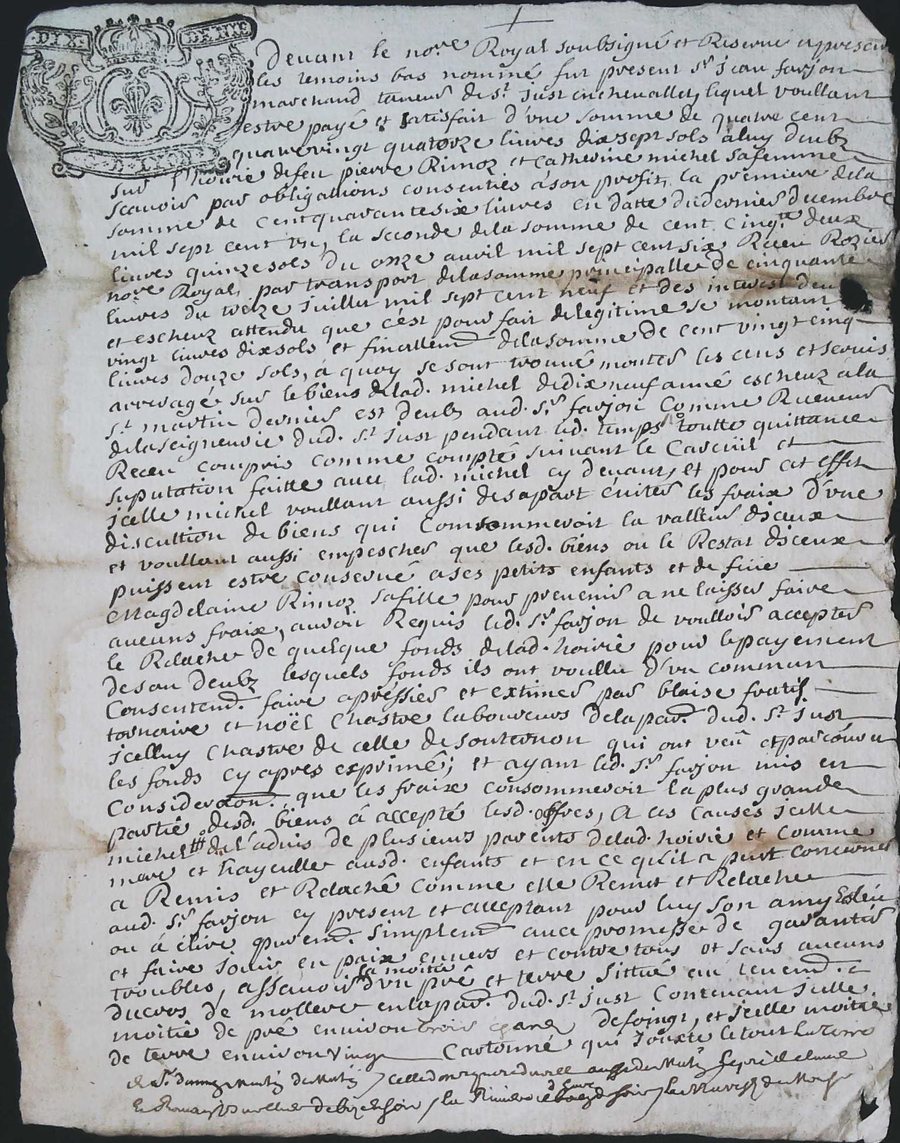 DIX DENIE
G. D. LYON
Devant le no.re Royal soubsigné et Reservé et presents
les temoins bas nommé fut present S.r Jean farjon
marchand taneur de S.t Just enchevallet, liquel voullant
estre payé et satisfait d'une somme de quatre cent
quatrevingt quatorze livres dixsept sols a luy deubz
sur l'hoirie de feu pierre Rimoz et Catherine michel sa femme
scavoir par obligations consenties à son profit, la premiere de la
somme de cent quarantesix livres en datte du dernier decembre
mil sept cent un, la seconde de la somme de cent cinq.te deux
livres quinze sols du onze avril mil sept cent six Receu Rozier
no.re Royal, par transport de la somme principalle de cinquante
livres du treize Juillet mil sept cent neuf et des interest deu
et escheuz attendu que c'est pour fait de legitime se montant
vingt livres dix sols et finallem.t de la somme de cent vingt cinq
livres douze sols, a quoy se sont trouvé monter les cens et servis
arrerage sur le biens de lad. michel de dix neuf anné escheuz a la
S.t martin dernier est deubz aud. S.r farjon comme Receveur
de la seigneurie dud. S.t Just pendant led. temps toutte quittance
Receu compris comme compte suivant le Carcull et
suputation faitte avec lad. michel cy devant, et pour cet effet
icelle michel voullant aussi de sa part éviter les fraix d'une
discution de biens qui Consommeroit la valleur diceux
et voullant aussi empescher que lesd. biens ou le Restat diceux
puissent estre conservé a ses petits enfants et de feue
Magdelaine Rimoz sa fille pour prevenir a ne laisser faire
aucuns fraix, auroit Requis led. S.r farjon de vouloir accepter
le Relache de quelque fonds de lad. hoirie pour le payement
de son deubz lesquels fonds ils ont voullu d'un commun
Consentem.t faire apressier et extimer par blaise fratis
tornaire et noël Chastre laboureurs de la par.e dud. S.t Just
icelluy Chastre de celle de souternon qui ont veu et parcouru
les fonds cy apres exprimé; et ayant led. S.r farjon mis en
Consideraõn que les fraix consommeroit la plus grande
partie desd. biens à accepté lesd. offres, A ces causes icelle
michel de l'advis de plusieurs parents de lad. hoirie et comme
mere et hayeulle ausd. enfants et en ce qu'il a peut concerner
a Remis et Relaché comme elle Remet et Relache
aud. S.r farjon cy present et acceptant pour luy son amy Esleu
ou à élire purem.t simplem.t avec promesse de garantir
et faire jouir en paix envers et contre tous et sans aucuns
troubles, assavoir la moitié d'un pré et terre sittué au tenem.t
du cros de mollere en la par.e dud. S.t Just Contenant icelle
moitié de pré environ trois chars de foingt, et icelle moitié
de terre environ vingt Cartonné qui Jouxte le tout la terre